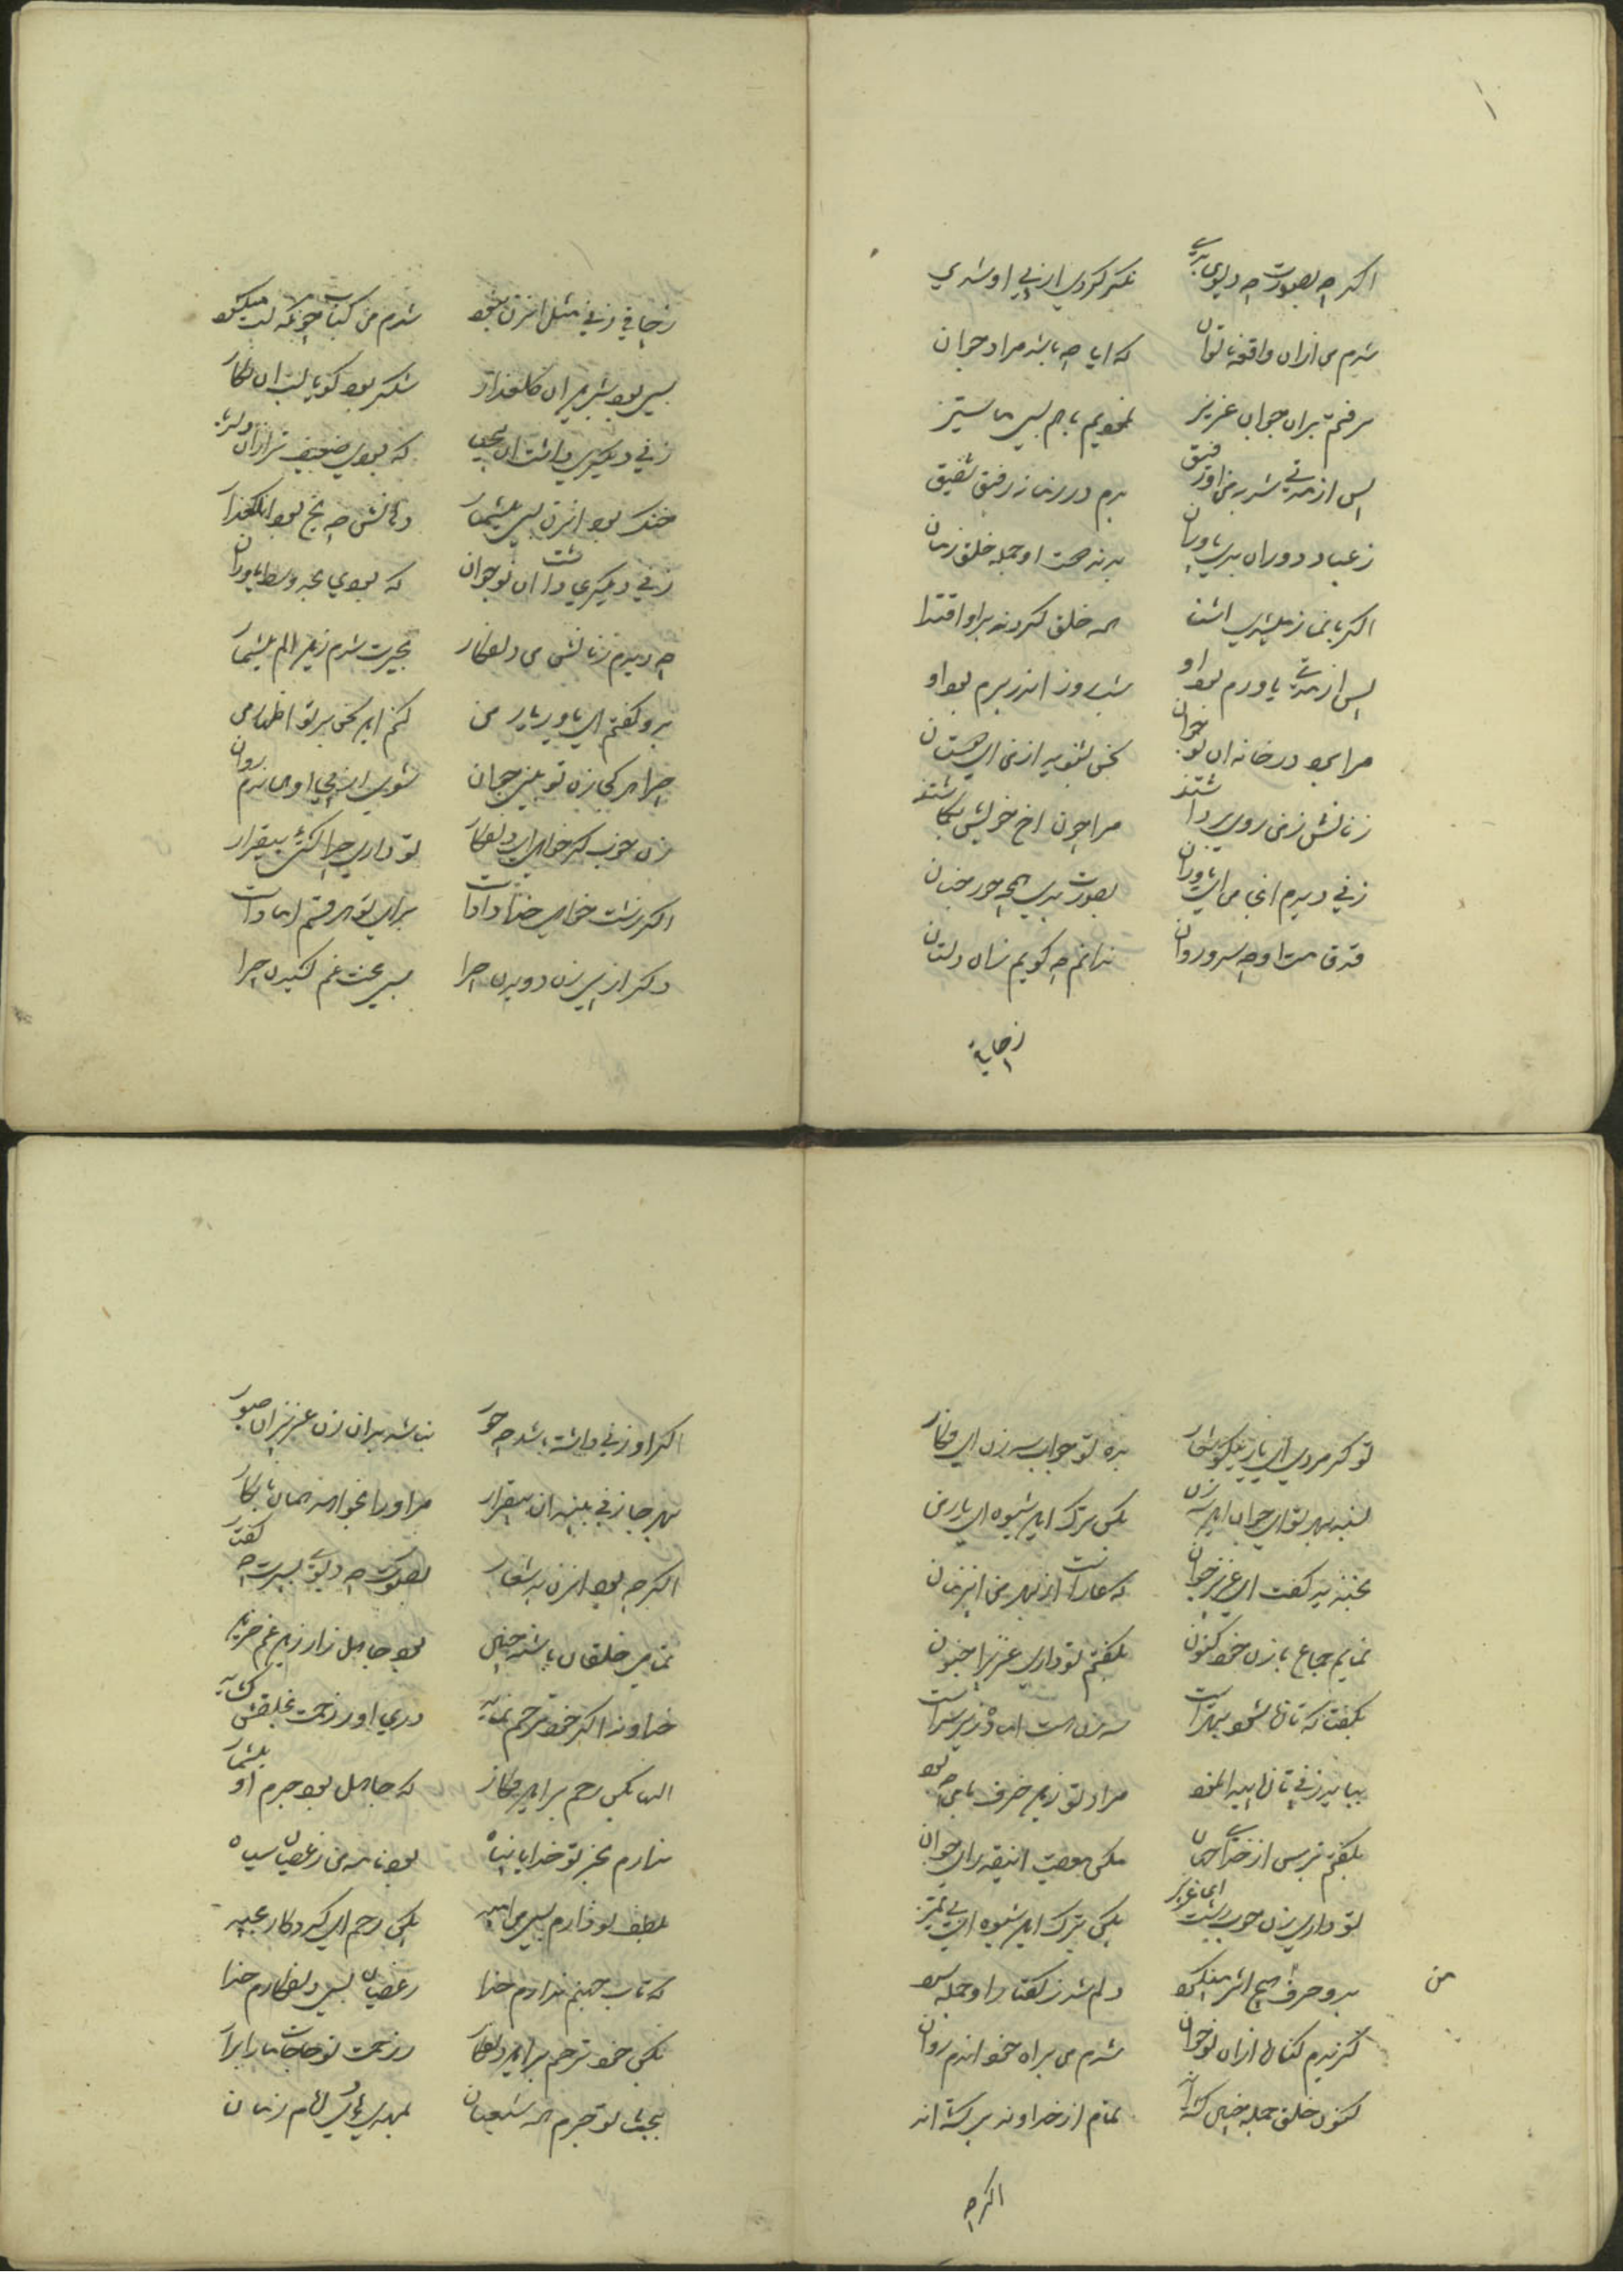 اکر چه بصورت چه دیوی بدی نکر کردی از پی او شدی
شدم من ازان واقف ناتوان که ایا چه باشد مراد جوان
برفتم بران جوان عزیز نمودیم باهم بسی ما ستیز
پس از مدتی شد بمن او رفیق بدم در زمانه رفیق شفیق
ز عباد دوران بدی یاوران بدند صحت او جمله خلق زمان
اکر با نماز میشدی اشنا همه خلق کردند براو اقتدا
پس از مدتی یاورم بود او شب روز اندر برم بود او
مرا برد در خانه ان نوجوان سخن بشنوید از من ای دوستان
زنانش ز من روی برداشتند مرا چون اخ خویش پنداشتند
زنی دیدم انجا من ای یاوران بصورت بدی همچه حور جنان
قد قامت او چه سرو روان ندانم چه کویم نشان دلستان
زحایه
زحایه زنی مثل انزن نبود شدم من کباب چونکه لب میکشود
بسی بود شیرین ان کلعذار شکر بود کویا لب ان نکار
زنی دیکری داشت ان نجیب که بودی ضعیف تر ازان دلربا
خنک بود انزن بسی بیشمار دهانش چه یخ بود انکلعذار
زنی دیکری داشت ان نوجوان که بودی عجوز وسط یاوران
چه دیدم زنانش من دلفکار بحیرت شدم زین الم بیشمار
برو کفتم ای یاور یار من کنم این سخن بر تو اظهار من
چرا هر کجا زن تو بینی جوان شوی از پی او همان دم روان
زن خوب کر خواهی ای دلفکار تو داری چرا کشتی بیقرار
اکر زشت خواهی خدا داد است برای تو هر قسم اماده است
دکر از پس زن دویدن چرا بسی محنت غم کشیدن چرا
تو کر مردی ای یار نیکو شعار بده تو جواب سه زن ای فکار
بسند بهر تو ای جوان این سه زن بکن ترک این شیوه ای یار من
بخندید کفت ای عزیز جوان که عار است از بهر من این زمان
نمایم جماع با زن خود کنون بکفتم تو داری عزیزا جنون
بکفتا که تا نشود بهتر است سه زن هست اماده در بر سر است
بیاید زنی تا پیدا نمود مراد تو زین حرف باهم چه بود
بکفتم بترس از خدا ای جوان مکن معصیت اینقدر ای جوان
تو داری زن خوب زشت ای عزیز بکن ترک این شیوه ای بی تمیز
من
برو حرف من هیچ اثر مینکرد دلم شد ز کفتار او جمله سرد
کزیدم کنار از ان نوجوان شدم من براه خود اندم روان
کنون خلق جمله چنین کشته اند تمام از خداوند بر کشته اند
اکر چه
اکر او زنی داشته باشد چه حور نباشد بران زن عزیزان صبور
بهر جا زنی بیند ان بیقرار مر او را بخواهد همان نابکار
اکر چه بود انزن بد شعار بصورت چه دیو بسیرت چه کفتار
تمامی خلقان باشند چنین بود جاهل زار زین غم حزین
خداوند اکر خود ترحم نماید دری او ز رحمت بخلقش کشاید
الها بکن رحم بر این فکار که جاهل بود جرم او بیشمار
ندارم بجز تو خدایا پناه بود نامه من ز عصیان سیاه
بلطف تو دارم بسی من امید بکن رحم ای کردکار مجید
که تاب جهنم ندارم خدا ز عصیان بسی دلفکارم خدا
بکن خود ترحم براین دلفکار ز رحمت تو حاجات ما را برار
ببخشا تو جرم همه شیعیان بمهدی هادی امام زمان